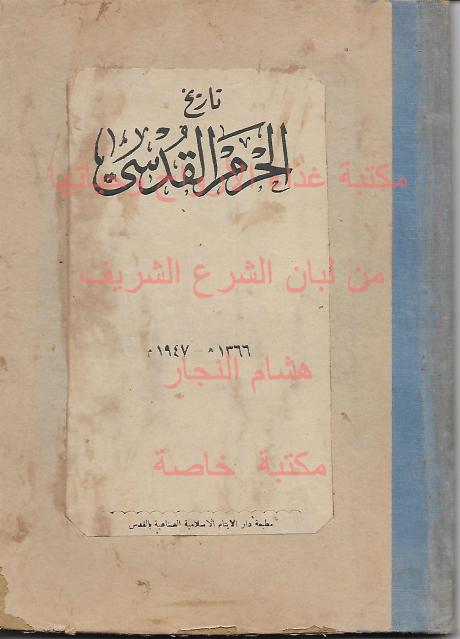 تاريخ
الحرم القدسي
مكتبة غذاء الأرواح
من لبان الشرع الشريف
١٣٦٦ هـ - ١٩٤٧ م
هشام النجار
مكتبة خاصة
مطبعة دار الايتام الاسلامية الصناعية بالقدس